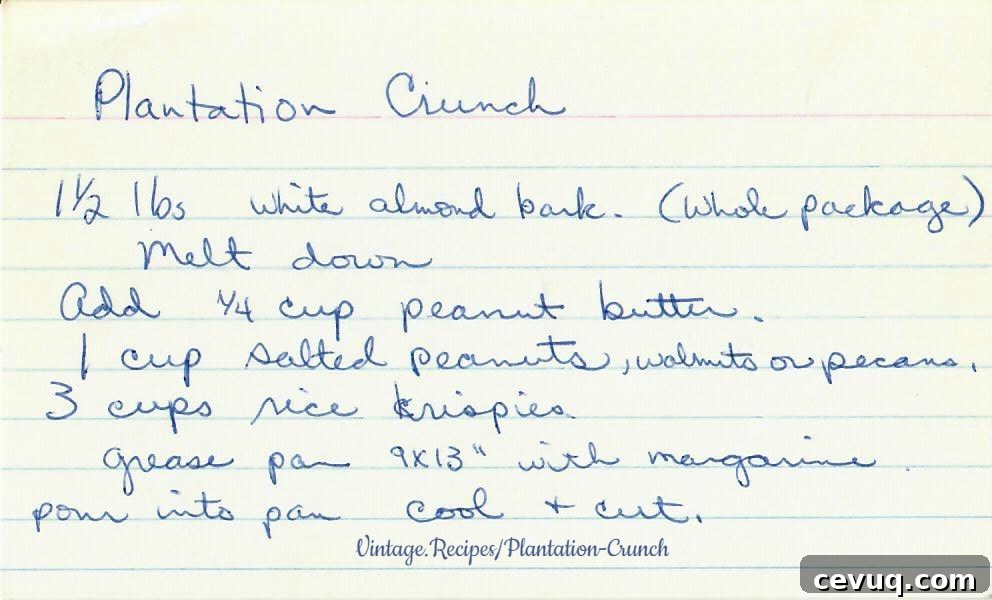 Plantation Crunch
1½ lbs white almond bark. (Whole package)
Melt down
Add ¼ cup peanut butter.
1 cup salted peanuts, walnuts or pecans.
3 cups rice krispies.
grease pan 9x13" with margarine.
pour into pan cool + cut.
Vintage.Recipes/Plantation-Crunch
cevuq.com